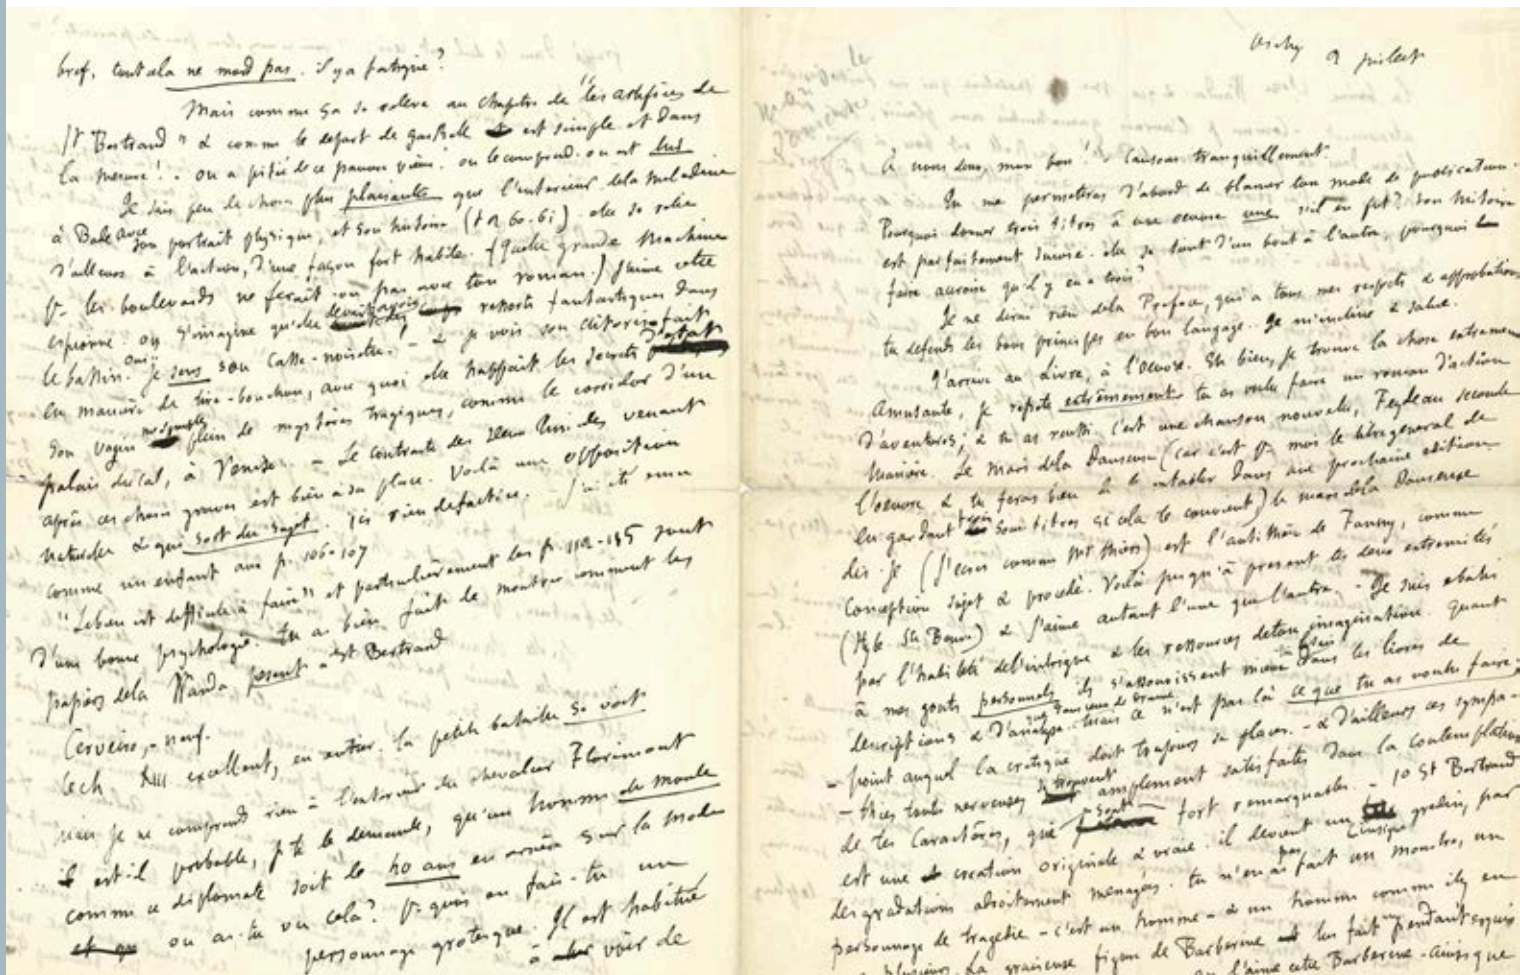 bref, tout cela ne mord pas. il y a fatigue?
Mais comme ça se relève au chapitre de "les artifices de
St Bertrand" & comme le départ de gaskell est simple et dans
la mesure! on a pitié de ce pauvre vieux! on le comprend. on est lui
Je sais peu de choses plus plaisantes que l'intérieur de la meladine
à Bade avec son portrait physique, et son histoire (t 2 60-61). elle se relie
d'ailleurs à l'action, d'une façon fort habile. (quelle grande machine
pr les boulevards ne ferait-on pas avec ton roman.) j'aime cette
espionne. on s'imagine qu'elle devait avoir des ressorts fantastiques dans
le bassin. Oui! je sens son casse-noisette! - & je vois son clitoris fait
en manière de tire-bouchon, avec quoi elle happait les secrets d'état
son vagin plein de mystères tragiques, comme le corridor d'un
palais ducal, à Venise. - Le contraste des deux lunides venant
après ces choses graves est bien à sa place. Voilà une opposition
naturelle & qui sort du sujet. ici rien de factice. - j'ai été ému
comme un enfant aux p. 106-107
"Le bien est difficile à faire" et particulièrement les p. 112-115 sont
d'une bonne psychologie. tu as bien fait de montrer comment les
papiers de la Wanda pesent à St Bertrand
Cerveiro, - neuf.
Le ch XIII excellent, en entier. la petite bataille se voit
mais je ne comprend rien à l'intérieur du chevalier Florimont
est-il probable, je te le demande, qu'un homme du monde
comme ce diplomate soit de 40 ans en arrière sur la mode
où as-tu vu cela? Pr quoi en fais-tu un
personnage grotesque. Il est habitué
à voir de
Vichy 2 juillet
À nous deux, mon bon! & causons tranquillement
Tu me permettras d'abord de blâmer ton mode de publication.
Pourquoi donner trois titres à une oeuvre une s'il en fut? son histoire
est parfaitement suivie. elle se tient d'un bout à l'autre, pourquoi
faire accroire qu'il y en a trois?
Je ne dirai rien de la Préface, qui a tous mes respects & approbations
tu défends les bons principes en bon langage. Je m'incline & salue.
J'arrive au Livre, à l'oeuvre. Eh bien, je trouve la chose extrêmement
amusante, je répète extrêmement tu as voulu faire un roman d'action
d'aventures, & tu as réussi. c'est une chanson nouvelle, Feydeau seconde
manière. Le Mari de la Danseuse (car c'est pr moi le titre général de
l'oeuvre & tu feras bien de l'intituler dans une prochaine édition
en gardant trois sous titres si cela te convient) le mari de la Danseuse
dis-je (j'écris comme Mr Thiers) est l'antithèse de Fanny, comme
conception sujet & procédé. Voilà jusqu'à présent tes deux extrémités
(style Ste Beuve) & j'aime autant l'une que l'autre. - Je suis ébahi
par l'habileté de l'intrigue & les ressources de ton imagination. quant
à mes goûts personnels ils s'assouvissent mieux dans les livres de
descriptions & d'analyse. mais ce n'est pas là ce que tu as voulu faire.
- point auquel la critique doit toujours se placer. - & d'ailleurs ces sympa-
- thies toutes nerveuses se trouvent amplement satisfaites dans la contemplation
de tes Caractères, qui sont fort remarquables. - 1o St Bertrand
est une création originale & vraie. il devient un gredin, par
des gradations adroitement ménagées. tu n'en as pas fait un monstre, un
personnage de tragédie - c'est un homme - & un homme comme il y en
a plusieurs. La gracieuse figure de Barberine lui fait un pendant exquis
on l'aime cette Barberine - ainsi que